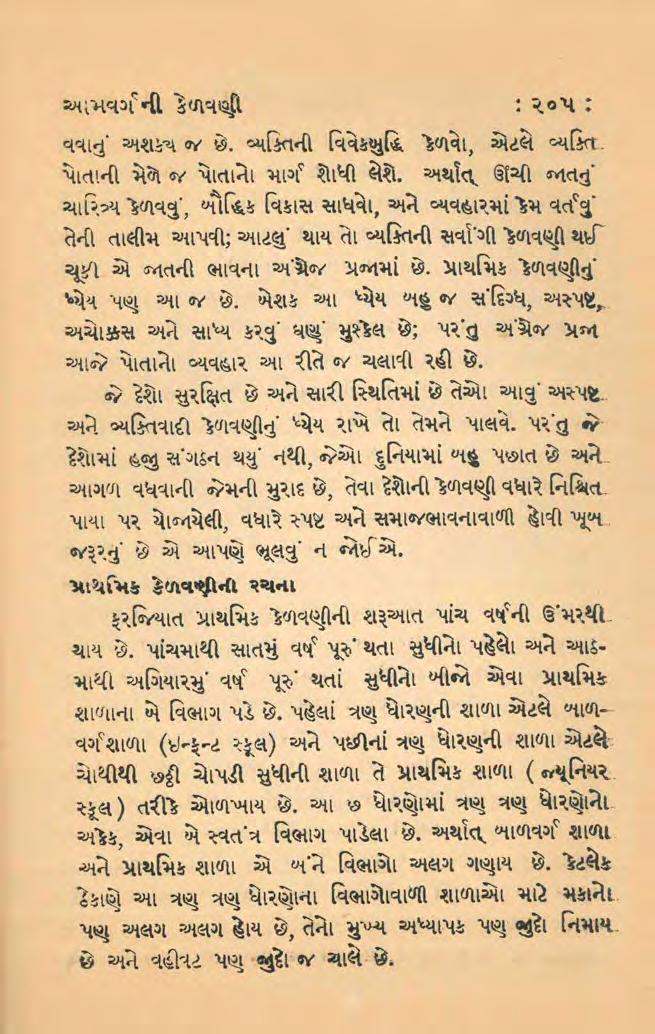 આમવર્ગની કેળવણી : ૨૦૫ :
વવાનું અશક્ય જ છે. વ્યક્તિની વિવેકબુદ્ધિ કેળવો, એટલે વ્યક્તિ
પોતાની મેળે જ પોતાનો માર્ગ શોધી લેશે. અર્થાત્ ઊંચી જાતનું
ચારિત્ર્ય કેળવવું, બૌદ્ધિક વિકાસ સાધવો, અને વ્યવહારમાં કેમ વર્તવું
તેની તાલીમ આપવી; આટલું થાય તો વ્યક્તિની સર્વાંગી કેળવણી થઈ
ચૂકી એ જાતની ભાવના અંગ્રેજ પ્રજામાં છે. પ્રાથમિક કેળવણીનું
ધ્યેય પણ આ જ છે. બેશક આ ધ્યેય બહુ જ સંદિગ્ધ, અસ્પષ્ટ,
અચોક્કસ અને સાધ્ય કરવું ઘણું મુશ્કેલ છે; પરંતુ અંગ્રેજ પ્રજા
આજે પોતાનો વ્યવહાર આ રીતે જ ચલાવી રહી છે.
જે દેશો સુરક્ષિત છે અને સારી સ્થિતિમાં છે તેઓ આવું અસ્પષ્ટ
અને વ્યક્તિવાદી કેળવણીનું ધ્યેય રાખે તો તેમને પાલવે. પરંતુ જે
દેશોમાં હજુ સંગઠન થયું નથી, જેઓ દુનિયામાં બહુ પછાત છે અને
આગળ વધવાની જેમની મુરાદ છે, તેવા દેશોની કેળવણી વધારે નિશ્ચિત
પાયા પર યોજાયેલી, વધારે સ્પષ્ટ અને સમાજભાવનાવાળી હોવી ખૂબ
જરૂરનું છે એ આપણે ભૂલવું ન જોઈએ.
પ્રાથમિક કેળવણીની રચના
ફરજિયાત પ્રાથમિક કેળવણીની શરૂઆત પાંચ વર્ષની ઉંમરથી
થાય છે. પાંચમાથી સાતમું વર્ષ પૂરું થતા સુધીનો પહેલો અને આઠ-
માથી અગિયારમું વર્ષ પૂરું થતાં સુધીનો બીજો એવા પ્રાથમિક
શાળાના બે વિભાગ પડે છે. પહેલાં ત્રણ ધોરણની શાળા એટલે બાળ-
વર્ગશાળા (ઇન્ફન્ટ સ્કૂલ) અને પછીનાં ત્રણ ધોરણની શાળા એટલે
ચોથીથી છઠ્ઠી ચોપડી સુધીની શાળા તે પ્રાથમિક શાળા ( જ્યૂનિયર
સ્કૂલ ) તરીકે ઓળખાય છે. આ છ ધોરણોમાં ત્રણ ત્રણ ધોરણોનો
અકેક, એવા બે સ્વતંત્ર વિભાગ પાડેલા છે. અર્થાત્ બાળવર્ગ શાળા
અને પ્રાથમિક શાળા એ બંને વિભાગો અલગ ગણાય છે. કેટલેક
ઠેકાણે આ ત્રણ ત્રણ ધોરણોના વિભાગોવાળી શાળાઓ માટે મકાનો
પણ અલગ અલગ હોય છે, તેનો મુખ્ય અધ્યાપક પણ જુદો નિમાય
છે અને વહીવટ પણ જુદો જ ચાલે છે.